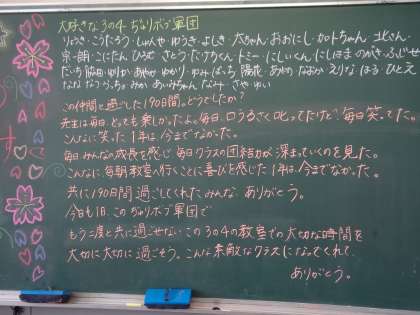 大好きな304 ぢょりボブ軍団
りょうき・こうたろう・しゅんや・ゆうき・よしき・大ちゃん・おおにし・加トちゃん・北さん・
宗一朗・こにたん・ひろむ・さとう・たけちくん・トミー・にしいくん・にしほま・のがき・ふじせ
だいち・脇田・ゆりか・あやせ・ゆかり・ゆみ・ぱっち・陽花・あやめ・なおか・えりな・はる・ひとえ
ななな・ならっちょ・みか・あいみちゃん・なみー・さや・ゆい
この仲間と過ごした190日間。どうでしたか?
先生は毎日、とっても楽しかったよ。毎日、口うるさく叱ってたけど毎日笑ってた。
こんなに笑った1年は、今までなかった。
毎日みんなの成長を感じ毎日クラスの団結力が深まっていくのを見た。
こんなに、毎朝教室へ行くことに喜びを感じた1年は、今までなかった。
共に190日間過ごしてくれたみんな、ありがとう。
今日も1日、このぢょりボブ軍団で
もう二度と共に過ごせない、この304の教室での大切な時間を
大切に大切に過ごそう。こんな素敵なクラスになってくれて、
ありがとう。